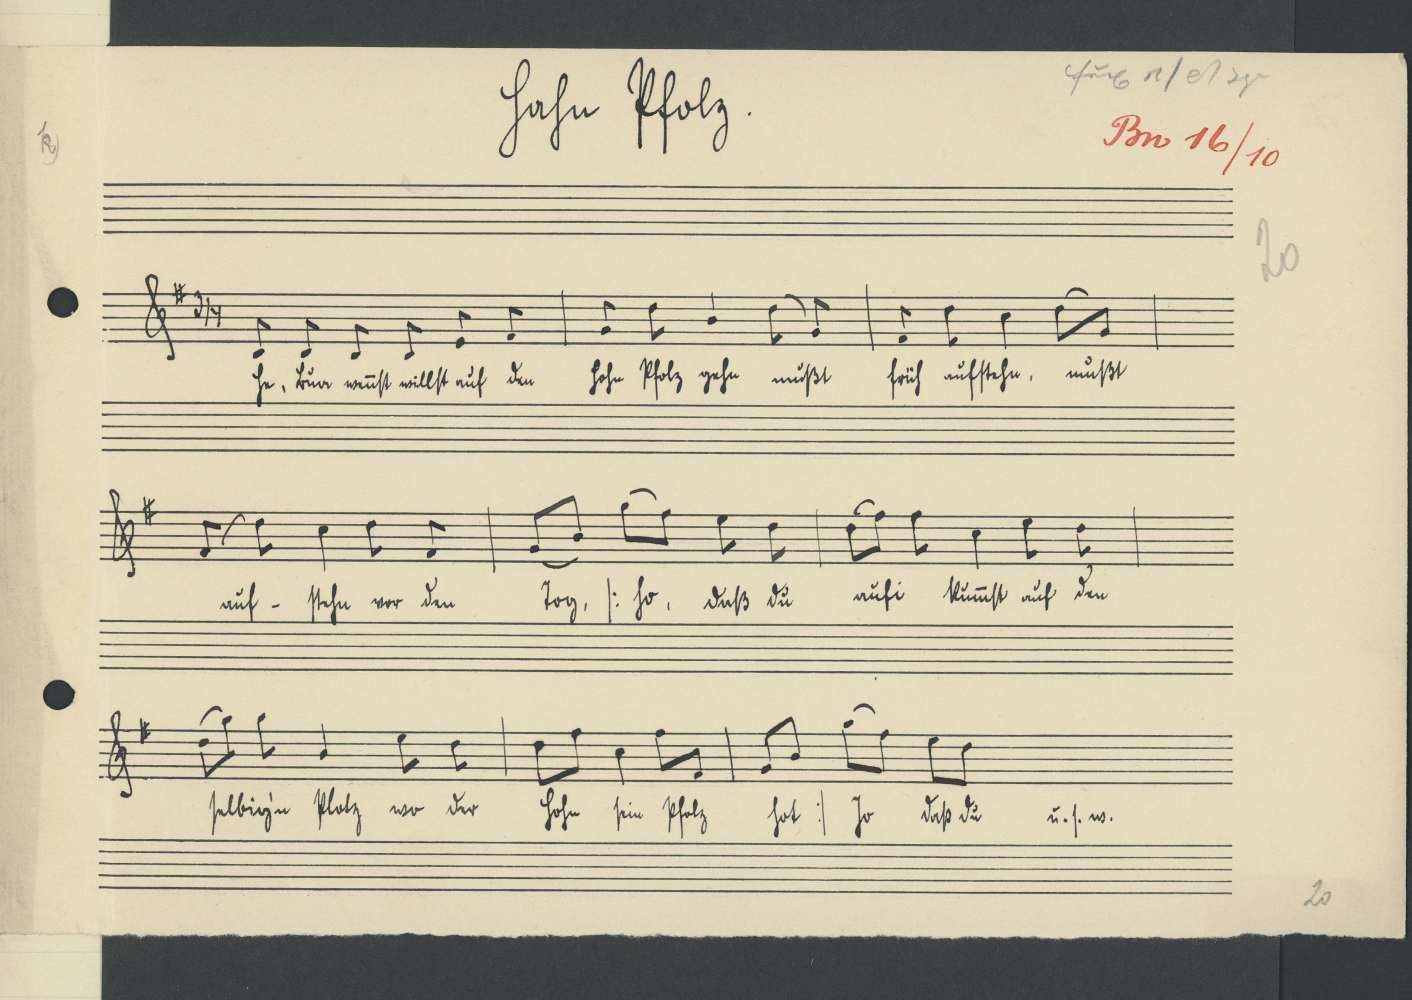 Hahn Pfolz.
Bw 16/10
20
3/4
He, Bua wennst willst auf den Hohn Pfolz gehn mußt früh aufstehn, mußt
auf - stehn vor den Tog, |: Ho, daß du aufi kummst auf den
selbig'n Plotz wo der Hohn sein Pfolz hot :| Jo daß du u. s. w.
20